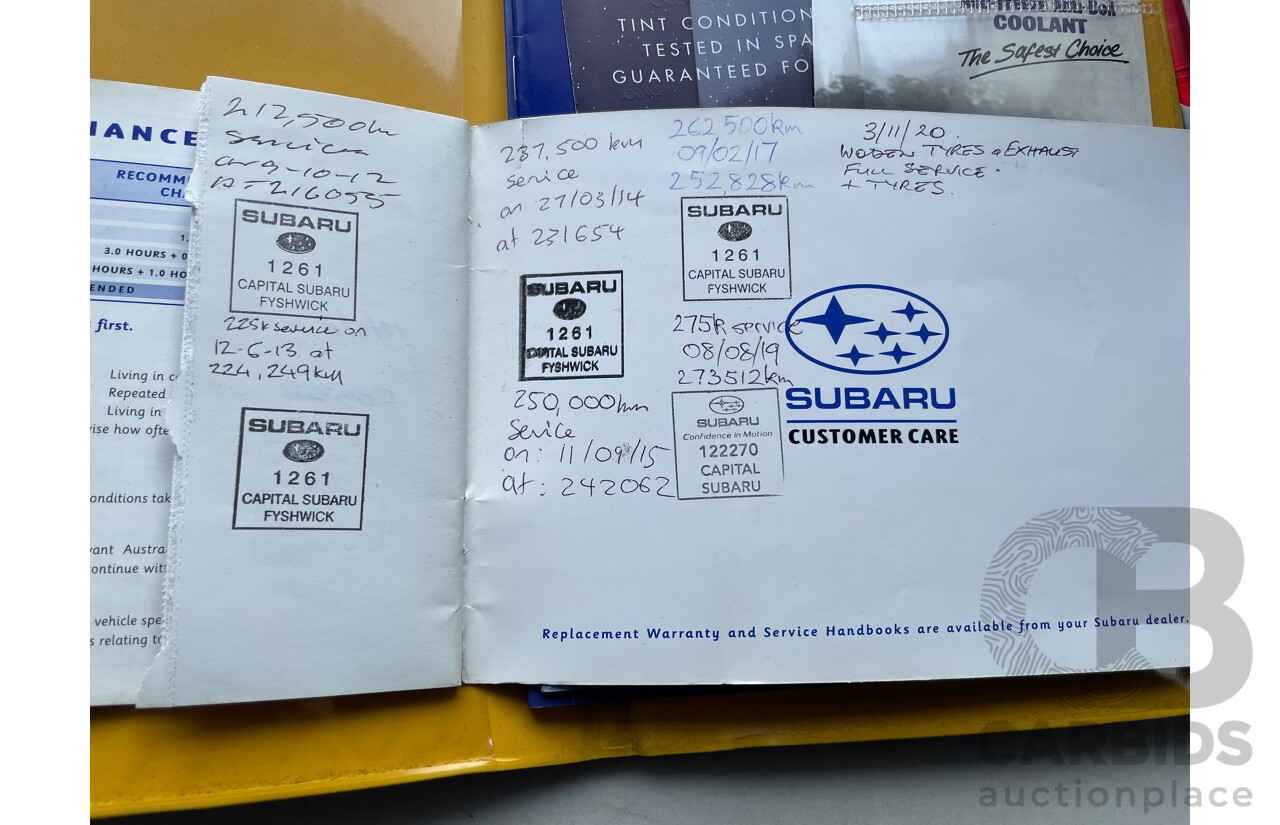 TINT CONDITION
TESTED IN SPA
GUARANTEED FO
COOLANT
The Safest Choice
NANCE
RECOMM
CH
1.
3.0 HOURS + 0
HOURS + 1.0 HO
ENDED
first.
Living in c
Repeated
Living in
ise how ofte
onditions tak
vant Austra
ontinue wit
vehicle spe
s relating to
212,500km
service
on 9-10-12
AT 216055
SUBARU
1261
CAPITAL SUBARU
FYSHWICK
225k service on
12-6-13 at
224,249km
SUBARU
1261
CAPITAL SUBARU
FYSHWICK
237,500 km
service
on 27/03/14
at 231654
SUBARU
1261
CAPITAL SUBARU
FYSHWICK
250,000km
Service
on: 11/09/15
at: 242062
262,500km
09/02/17
252,828km
SUBARU
1261
CAPITAL SUBARU
FYSHWICK
275k service
08/08/19
273512km
SUBARU
Confidence in Motion
122270
CAPITAL
SUBARU
3/11/20.
WODEN TYRES & EXHAUST
FULL SERVICE.
+ TYRES.
SUBARU
CUSTOMER CARE
Replacement Warranty and Service Handbooks are available from your Subaru dealer.
CB
CARBIDS
auctionplace